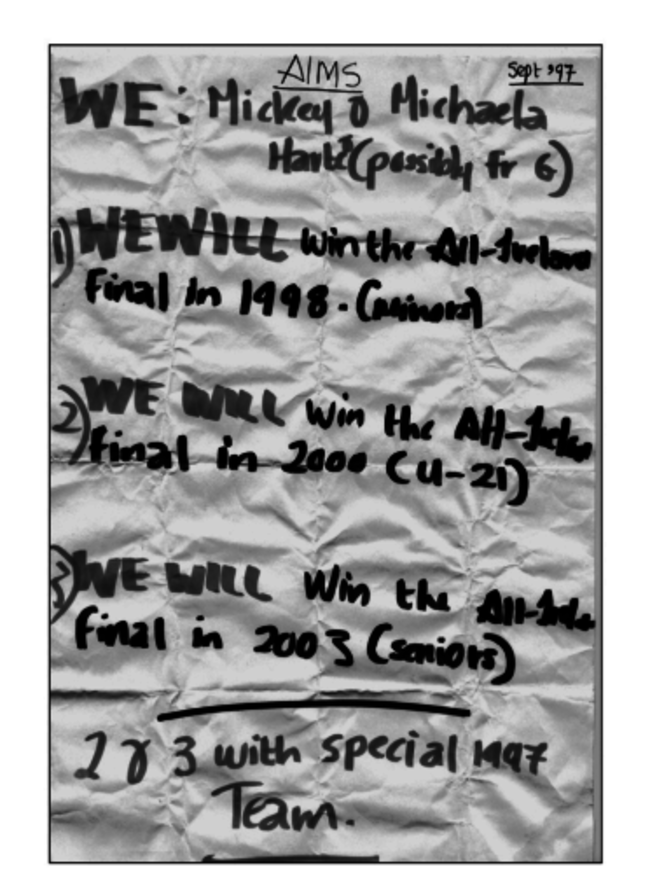 AIMS
Sept '97
WE: Mickey & Michaela
Harte (possibly Fr G)
1) WE WILL win the All-Ireland
Final in 1998. (minors)
2) WE WILL win the All-Ireland
final in 2000 (U-21)
3) WE WILL Win the All-Irela
final in 2003 (seniors)
2 & 3 with special 1997
Team.